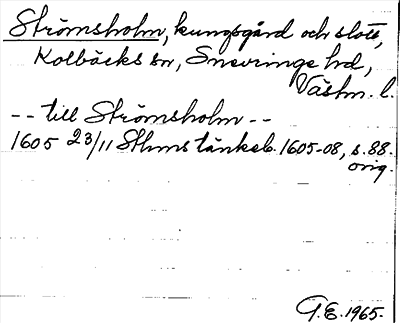 Strömsholm, kungsgård och slott,
Kolbäcks sn, Snevringe hd,
Västm. l.
-- till Strömsholm --
1605 23/11 Sthms tänkeb. 1605-08, s. 88.
orig.
G.E. 1965.